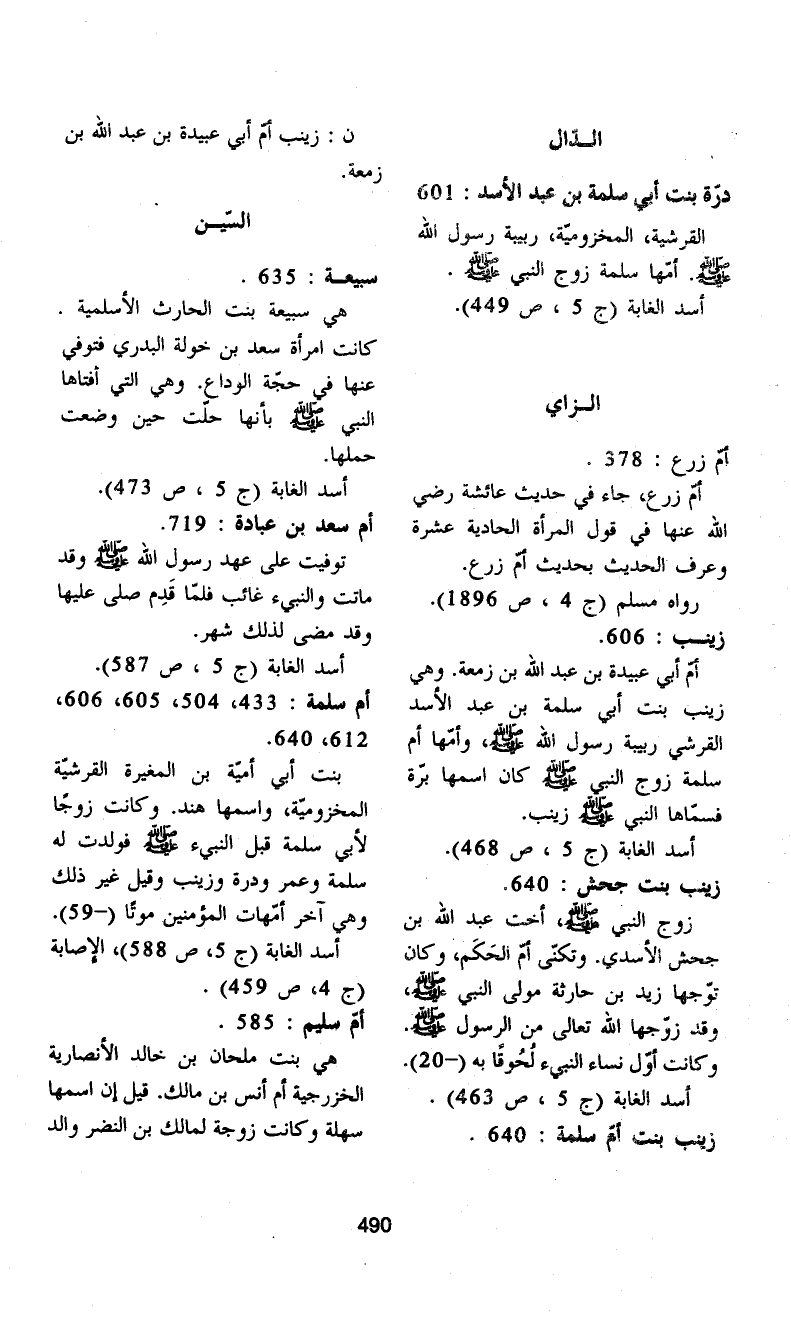 الـدّال
درّة بنت أبي سلمة بن عبد الأسد : 601
القرشية، المخزوميّة، ربيبة رسول الله
ﷺ. أمّها سلمة زوج النبي ﷺ .
أسد الغابة (ج 5 ، ص 449).
الـزاي
أمّ زرع : 378 .
أمّ زرع، جاء في حديث عائشة رضي
الله عنها في قول المرأة الحادية عشرة
وعرف الحديث بحديث أمّ زرع.
رواه مسلم (ج 4 ، ص 1896).
زينـب : 606.
أمّ أبي عبيدة بن عبد الله بن زمعة. وهي
زينب بنت أبي سلمة بن عبد الأسد
القرشي ربيبة رسول الله ﷺ، وأمّها أم
سلمة زوج النبي ﷺ كان اسمها برّة
فسمّاها النبي ﷺ زينب.
أسد الغابة (ج 5 ، ص 468).
زينب بنت جحش : 640.
زوج النبي ﷺ، أخت عبد الله بن
جحش الأسدي. وتكنّى أمّ الحَكَم، وكان
توّجها زيد بن حارثة مولى النبي ﷺ،
وقد زوّجها الله تعالى من الرسول ﷺ.
وكانت أوّل نساء النبيء لُحُوقًا به (–20).
أسد الغابة (ج 5 ، ص 463) .
زينب بنت أمّ سلمة : 640 .
ن : زينب أمّ أبي عبيدة بن عبد الله بن
زمعة.
السّيـن
سبيعـة : 635 .
هي سبيعة بنت الحارث الأسلمية .
كانت امرأة سعد بن خولة البدري فتوفي
عنها في حجّة الوداع. وهي التي أفتاها
النبي ﷺ بأنها حلّت حين وضعت
حملها.
أسد الغابة (ج 5 ، ص 473).
أم سعد بن عبادة : 719.
توفيت على عهد رسول الله ﷺ وقد
ماتت والنبيء غائب فلمّا قَدِم صلى عليها
وقد مضى لذلك شهر.
أسد الغابة (ج 5 ، ص 587).
أم سلمة : 433، 504، 605، 606،
612، 640.
بنت أبي أميّة بن المغيرة القرشيّة
المخزوميّة، واسمها هند. وكانت زوجًا
لأبي سلمة قبل النبيء ﷺ فولدت له
سلمة وعمر ودرة وزينب وقيل غير ذلك
وهي آخر أمّهات المؤمنين موتًا (–59).
أسد الغابة (ج 5، ص 588)، الإصابة
(ج 4، ص 459) .
أمّ سليم : 585 .
هي بنت ملحان بن خالد الأنصارية
الخزرجية أم أنس بن مالك. قيل إن اسمها
سهلة وكانت زوجة لمالك بن النضر والد
490